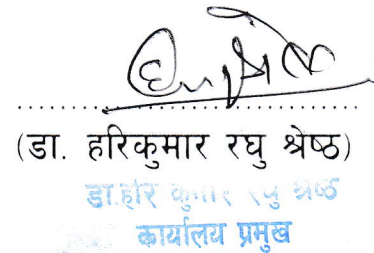 (डा. हरिकुमार रघु श्रेष्ठ)
डा.हरि कुमार रघु श्रेष्ठ
कार्यालय प्रमुख